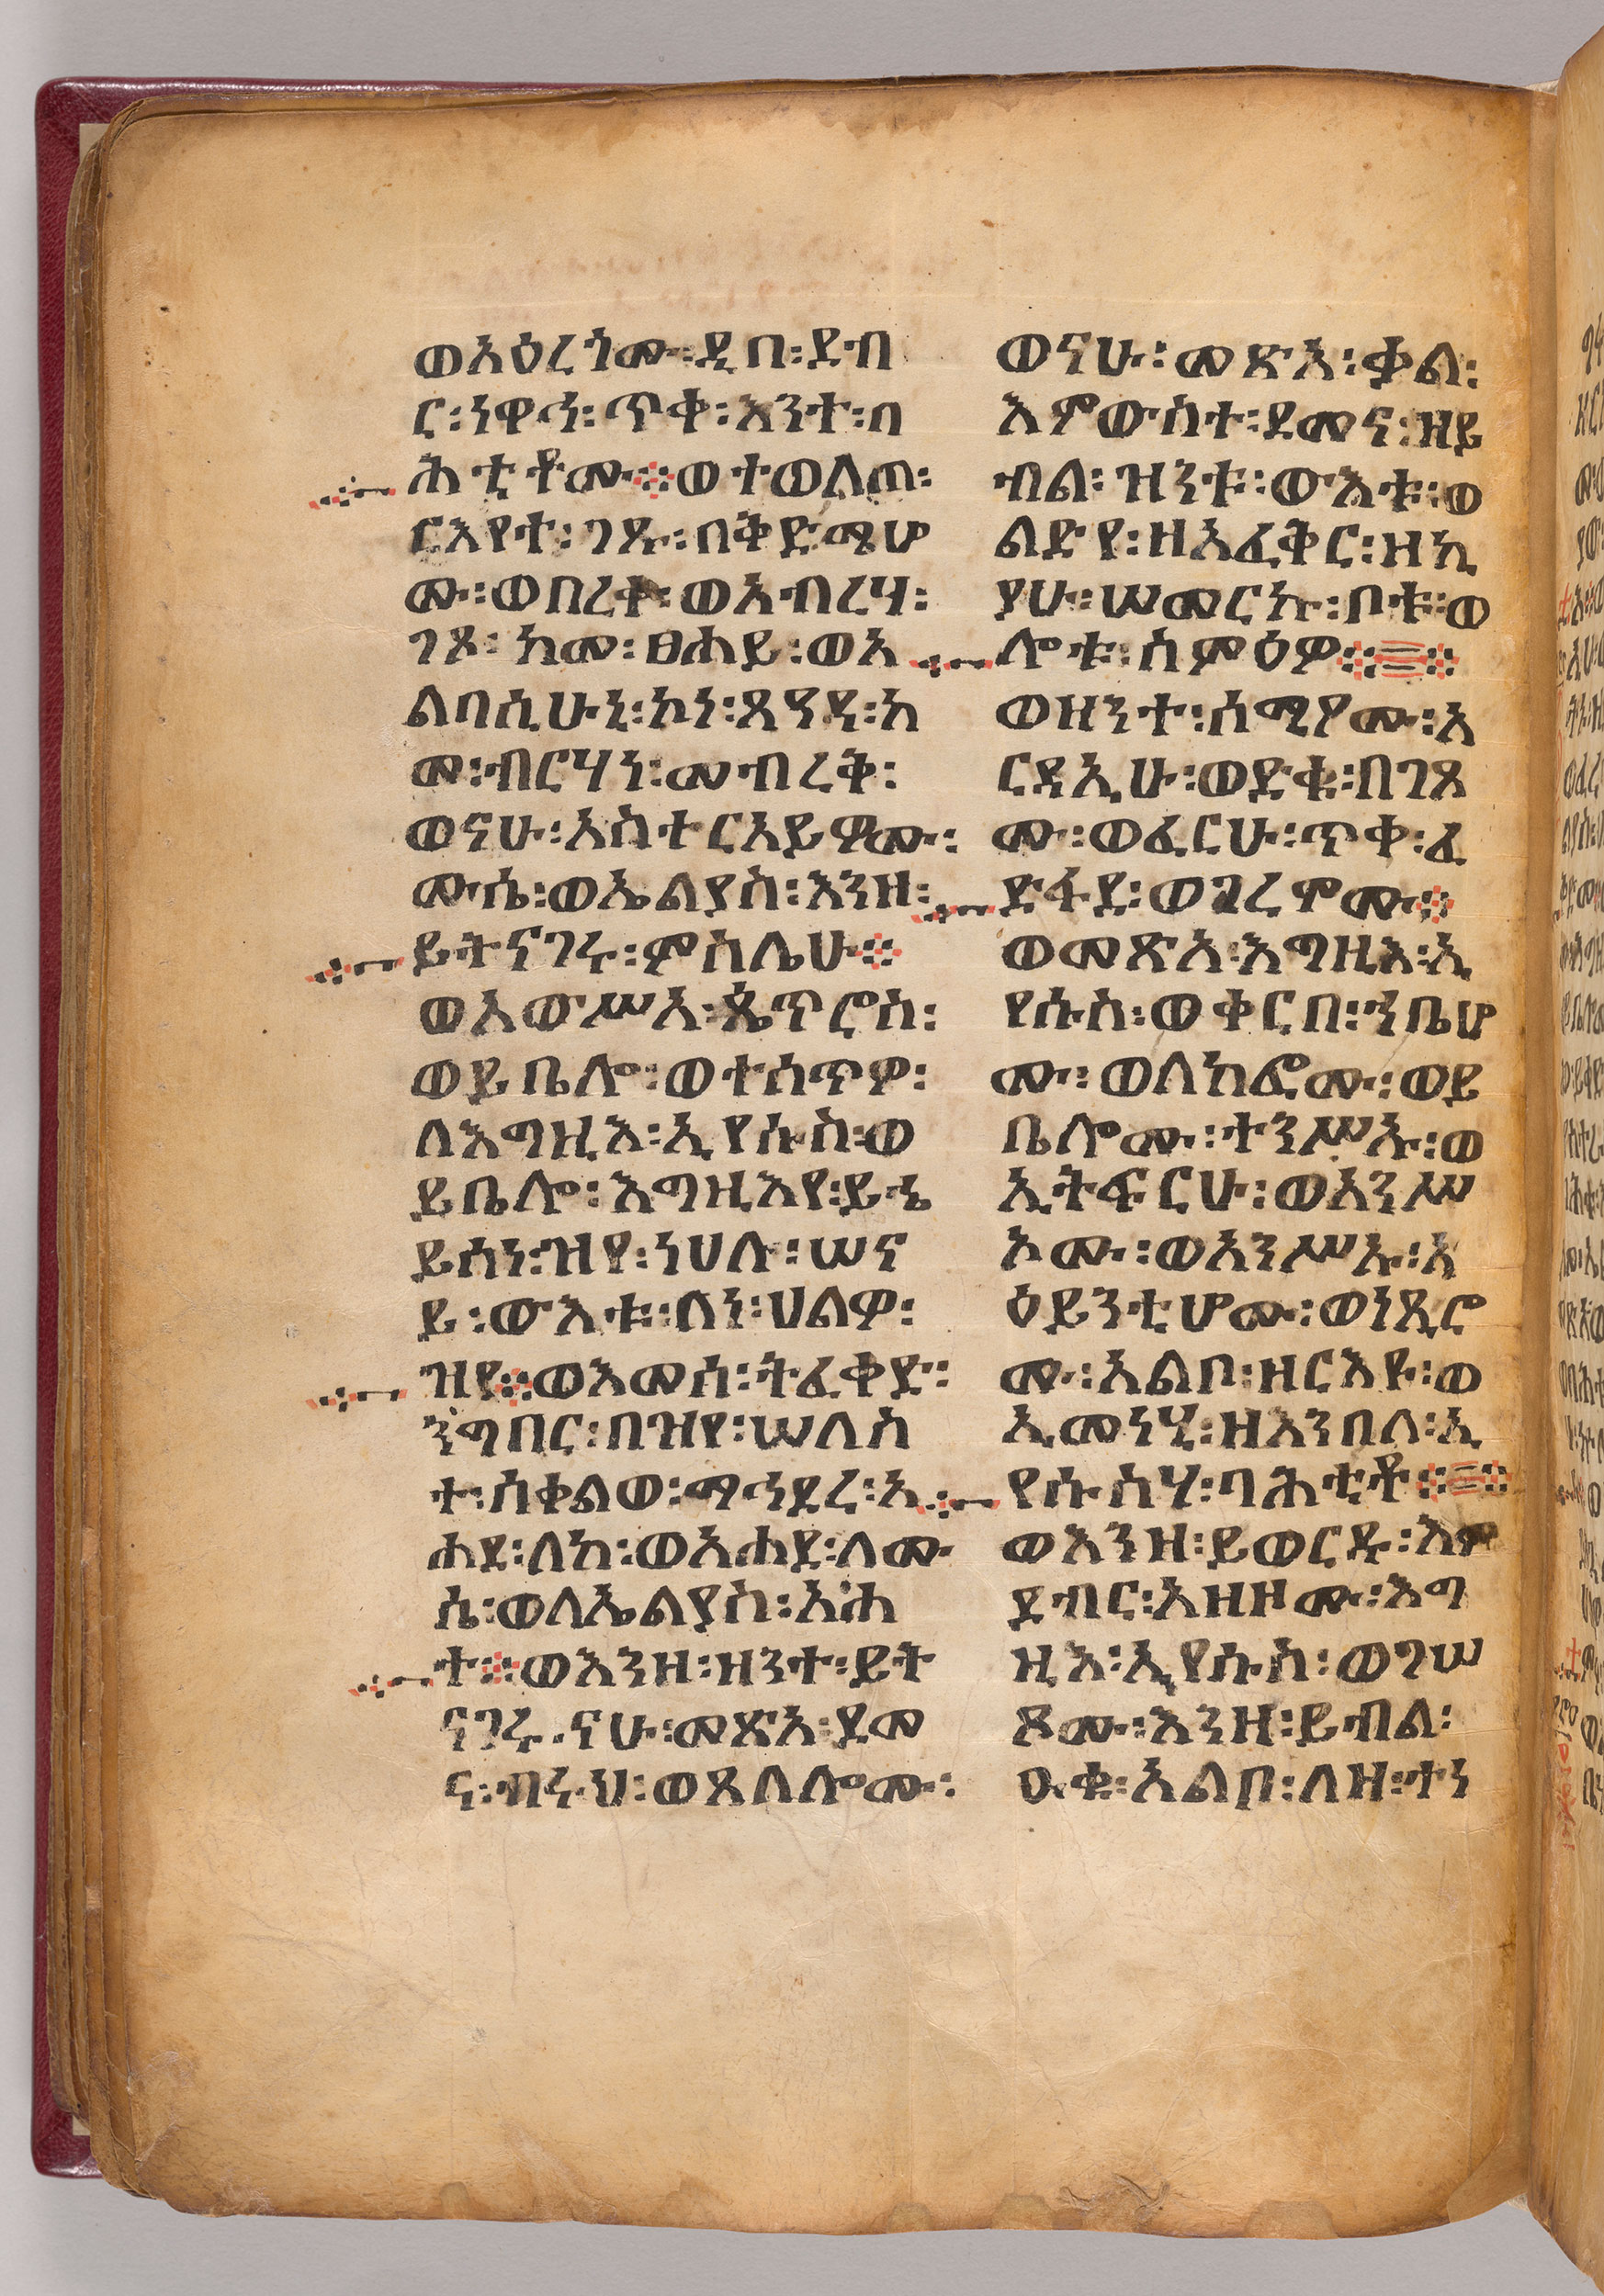 ወአዕረጎሙ፡ዲበ፡ደብ
ር፡ነዋኅ፡ጥቀ፡እንተ፡በ
ሕቲቶሙ፨ወተወለጠ፡
ርእየተ፡ገጹ፡በቅድሜሆ
ሙ፡ወበረቀ፡ወአብረሃ፡
ገጹ፡ከመ፡ፀሐይ፡ወአ
ልባሲሁኒ፡ኮነ፡ጸዓዳ፡ከ
መ፡ብርሃነ፡መብረቅ፡
ወናሁ፡አስተርአይዎሙ፡
ሙሴ፡ወኤልያስ፡እንዘ፡
ይትናገሩ፡ምስሌሁ፨
ወአውሥአ፡ጴጥሮስ፡
ወይቤሎ፡ወተሰጥዎ፡
ለእግዚእ፡ኢየሱስ፡ወ
ይቤሎ፡እግዚእየ፡ይኄ
ይሰነ፡ዝየ፡ነሀሉ፡ሠና
ይ፡ውእቱ፡ለነ፡ሀልዎ፡
ዝየ፨ወእመሰ፡ትፈቀድ፡
ንግበር፡በዝየ፡ሠለስ
ተ፡ሰቀልወ፡ማኅደረ፡አ
ሐደ፡ለከ፡ወአሐደ፡ለሙ
ሴ፡ወለኤልያስ፡አሐ
ተ፨ወእንዘ፡ዘንተ፡ይት
ናገሩ፡ናሁ፡መጽአ፡ደመ
ና፡ብሩህ፡ወጸለሎሙ፡
ወናሁ፡መጽአ፡ቃል፡
እምውስተ፡ደመና፡ዘይ
ብል፡ዝንቱ፡ውእቱ፡ወ
ልድየ፡ዘአፈቅር፡ዘኪ
ያሁ፡ሠመርኩ፡ቦቱ፡ወ
ሎቱ፡ስምዕዎ፨፨
ወዘንተ፡ሰሚዖሙ፡አ
ርዳኢሁ፡ወድቁ፡በገጾ
ሙ፡ወፈርሁ፡ጥቀ፡ፈ
ድፋደ፡ወገረምሙ፨
ወመጽአ፡እግዚእ፡ኢ
የሱስ፡ወቀርበ፡ኀቤሆ
ሙ፡ወለከፎሙ፡ወይ
ቤሎሙ፡ተንሥኡ፡ወ
ኢትፍርሁ፡ወአንሥ
ኦሙ፡ወአንሥኡ፡አ
ዕይንቲሆሙ፡ወነጺሮ
ሙ፡አልቦ፡ዘርእዩ፡ወ
ኢመነሂ፡ዘእንበለ፡ኢ
የሱስሃ፡ባሕቲቶ፨፨
ወእንዘ፡ይወርዱ፡እም
ደብር፡አዘዞሙ፡እግ
ዚእ፡ኢየሱስ፡ወገሠ
ጾሙ፡እንዘ፡ይብል፡
ዑቁ፡አልቦ፡ለዘ፡ተነ